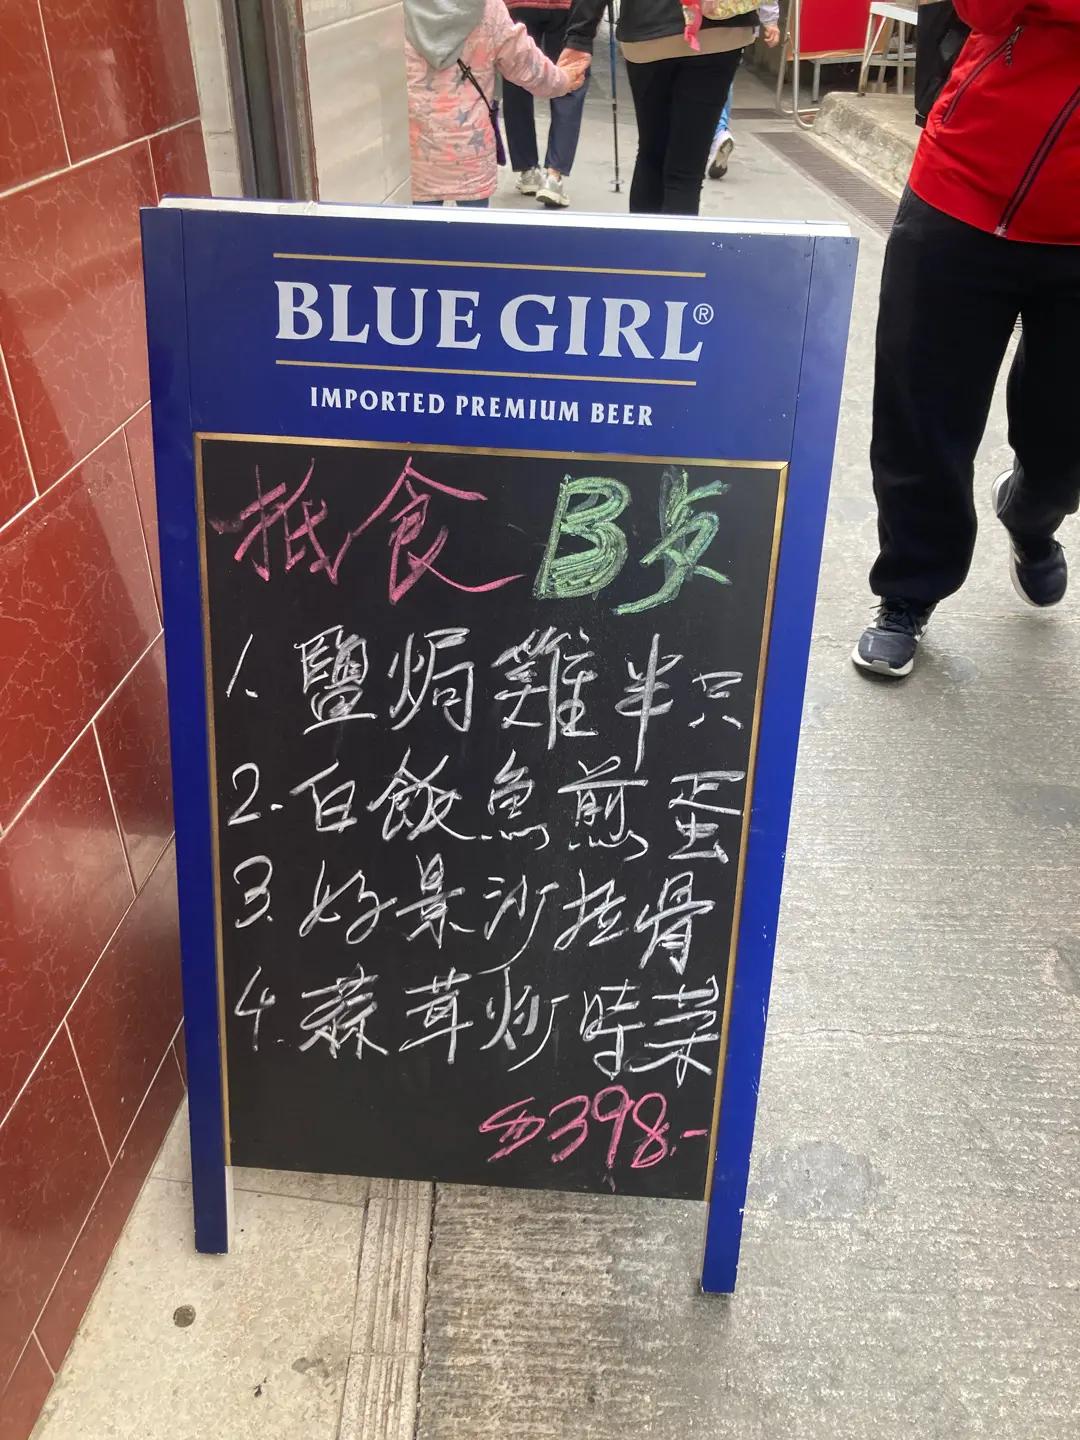 BLUE GIRL®
IMPORTED PREMIUM BEER
抵食 B炗
1. 鹽焗雞半只
2. 白飯魚煎蛋
3. 好景沙拉骨
4. 蒜茸炒時菜
$398.-